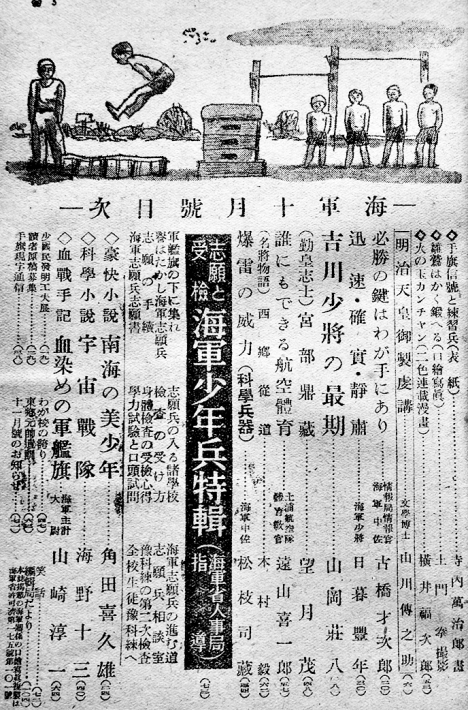 ―海軍十月號目次―
◇手旗信號と練習兵(表紙) 寺内萬治郎畫
◇雛鷲はかく鍛へる(口繪寫眞) 土門拳撮影
◇火の玉カンチャン(二色連載漫畫) 横井福次郎
明治天皇御製虔講 文學博士 山川傳之助
必勝の鍵はわが手にあり 情報局情報官 海軍中佐 古橋才次郎
迅速・確實・靜肅 海軍少將 日暮豐年
吉川少將の最期 山岡莊八
(勤皇志士)宮部鼎藏 望月茂
誰にもできる航空體育 土浦航空隊 體育教官 遠山喜一郎
(名將物語)西郷從道 木村毅
爆雷の威力(科學兵器) 海軍中佐 松枝司藏
志願と受檢 海軍少年兵特輯(海軍省人事局指導)
軍艦旗の下に集れ
譽はたかし海軍志願兵
志願の手續
海軍志願兵志願書
志願兵の入る諸學校
檢査の受け方
身體檢査の受檢心得
學力試驗と口頭試問
海軍志願兵の進む道
志願兵相談室
豫科練の第二次檢査
全校生徒豫科練へ
◇豪快小説 南海の美少年 角田喜久雄
◇科學小説 宇宙戰隊 海野十三
◇血戰手記 血染めの軍艦旗 海軍主計大尉 山崎淳一
少國民發明工夫展
讀者原稿募集
手旗現字通信
わが校の誇り
東郷元帥載題
十一月號のお知らせ
笑話
編輯局だより